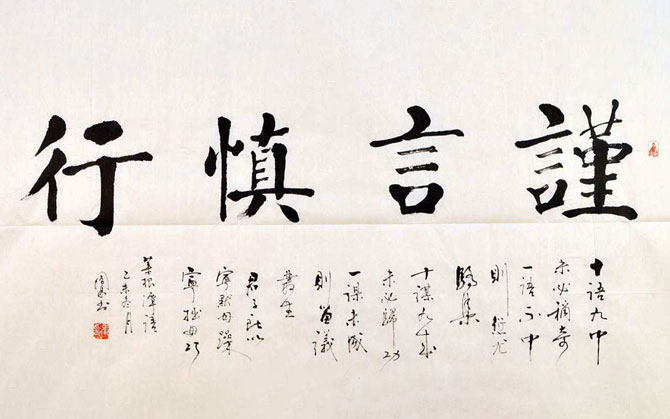 謹言慎行
十語九中
未必稱奇
一語不中
則愆尤
駢集
十謀九成
未必歸功
一謀未成
則訾議
叢生
君子所以
寧默毋躁
寧拙毋巧
菜根譚語
乙未冬月